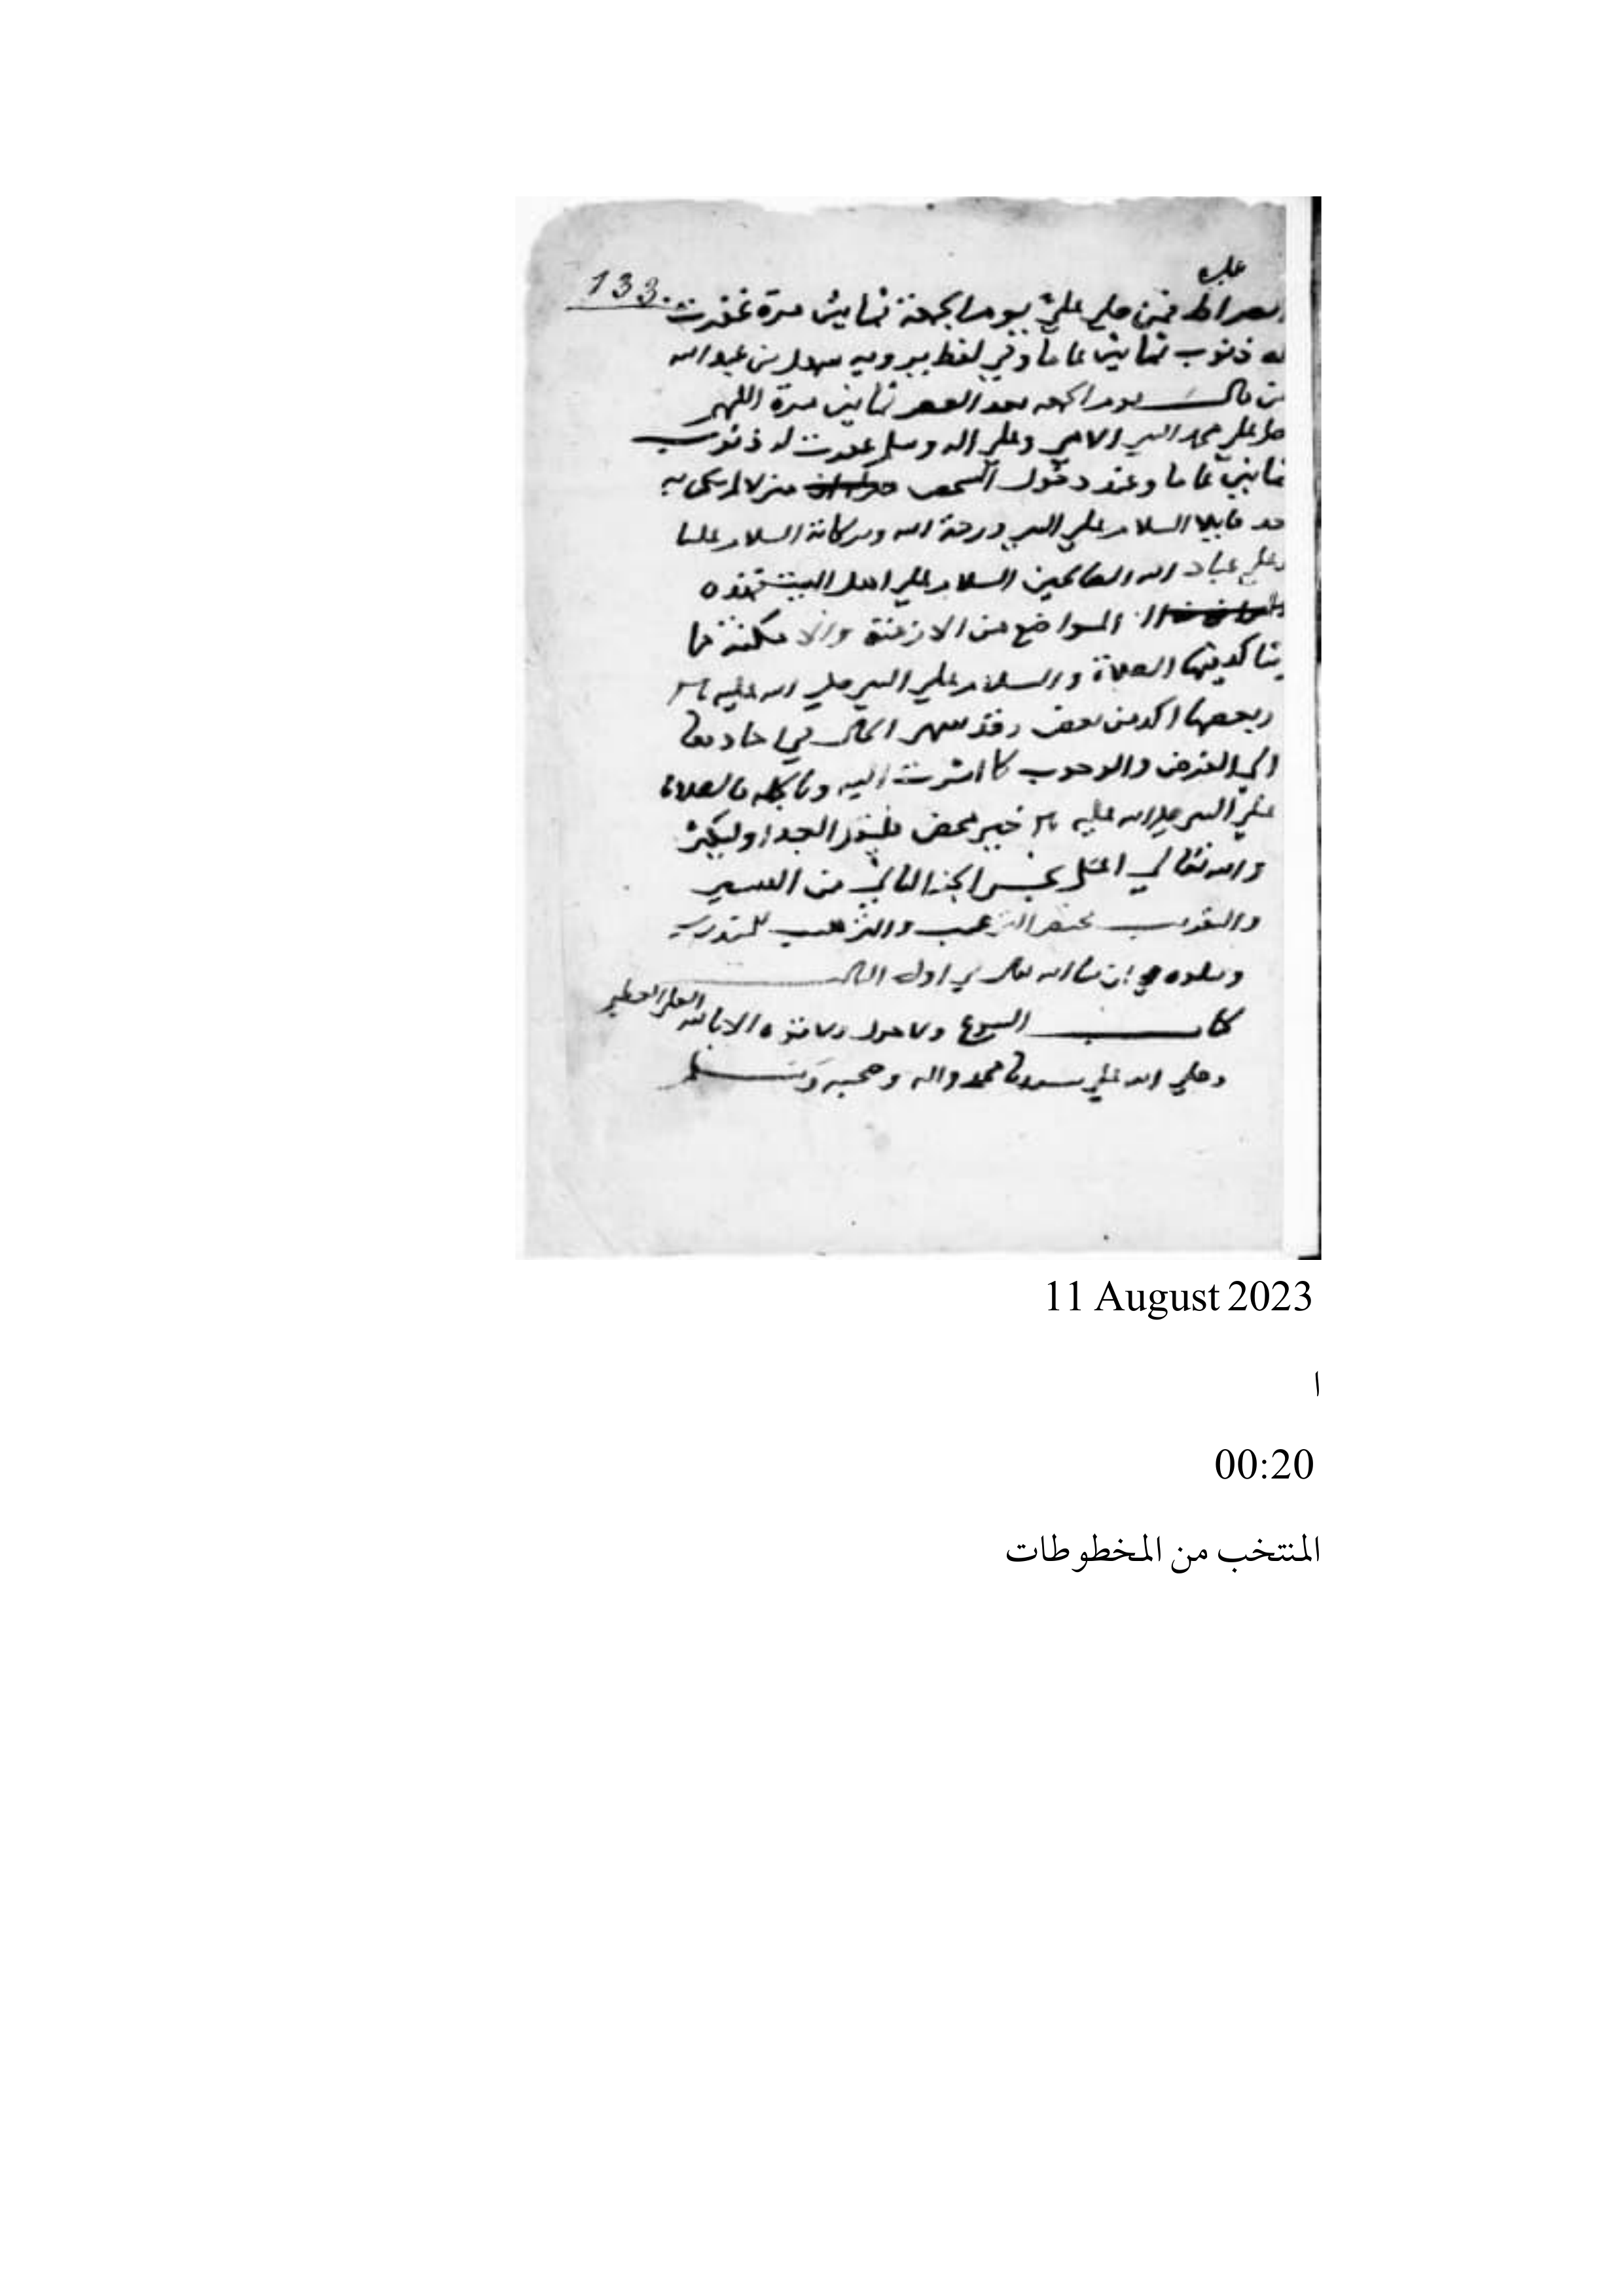 133
عليه
الصراط فمن صلى علي يوم الجمعة ثمانين مرة غفرت
له ذنوب ثمانين عاما وفي لفظ يرويه سهل بن عبد الله
من قال يوم الجمعة بعد العصر ثمانين مرة اللهم
صل على محمد النبي الامي وعلى اله وسلم غفرت له ذنوب
ثمانين عاما وعند دخول الشخص منزلا لم يكن به
احد قايلا السلام على النبي ورحمة الله وبركاته السلام علينا
وعلى عباد الله الصالحين السلام على اهل البيت فهذه
المواضع من الازمنة والامكنة مما
يتاكد فيها الصلاة والسلام على النبي صلى الله عليه
وبعضها اكد من بعض وقد
الى الفرض والوجوب كما اشرت اليه وبالجملة فالصلاة
على النبي صلى الله عليه خير محض العبد او ليكثر
والله تعالى اعلم الجزء الثاني من
والتقريب مختصر الترغيب والترهيب
ويتلوه ان شاء الله تعالى في اول الثالث
كتاب البيوع ولا حول ولا قوة الا بالله العلي العظيم
وصلى الله على سيدنا محمد واله وصحبه وسلم
11 August 2023
ا
00:20
المنتخب من المخطوطات